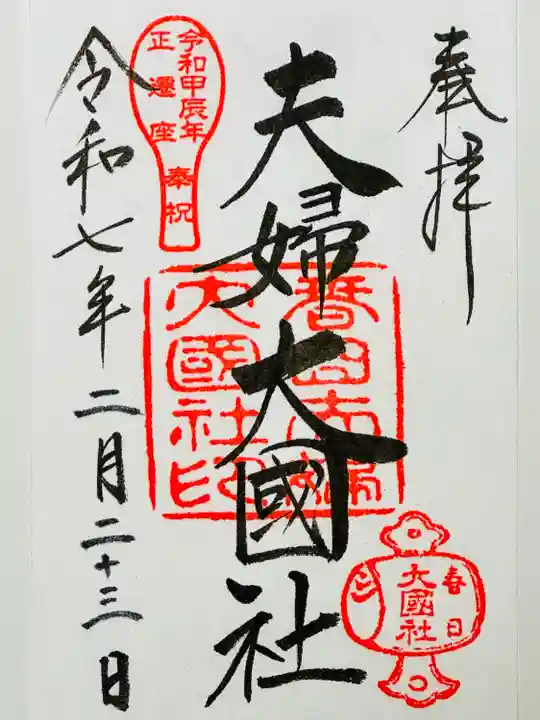 奉拝
夫婦大國社
令和七年二月二十三日
令和甲辰年
正遷座
奉祝
大國社印
春日
大國社